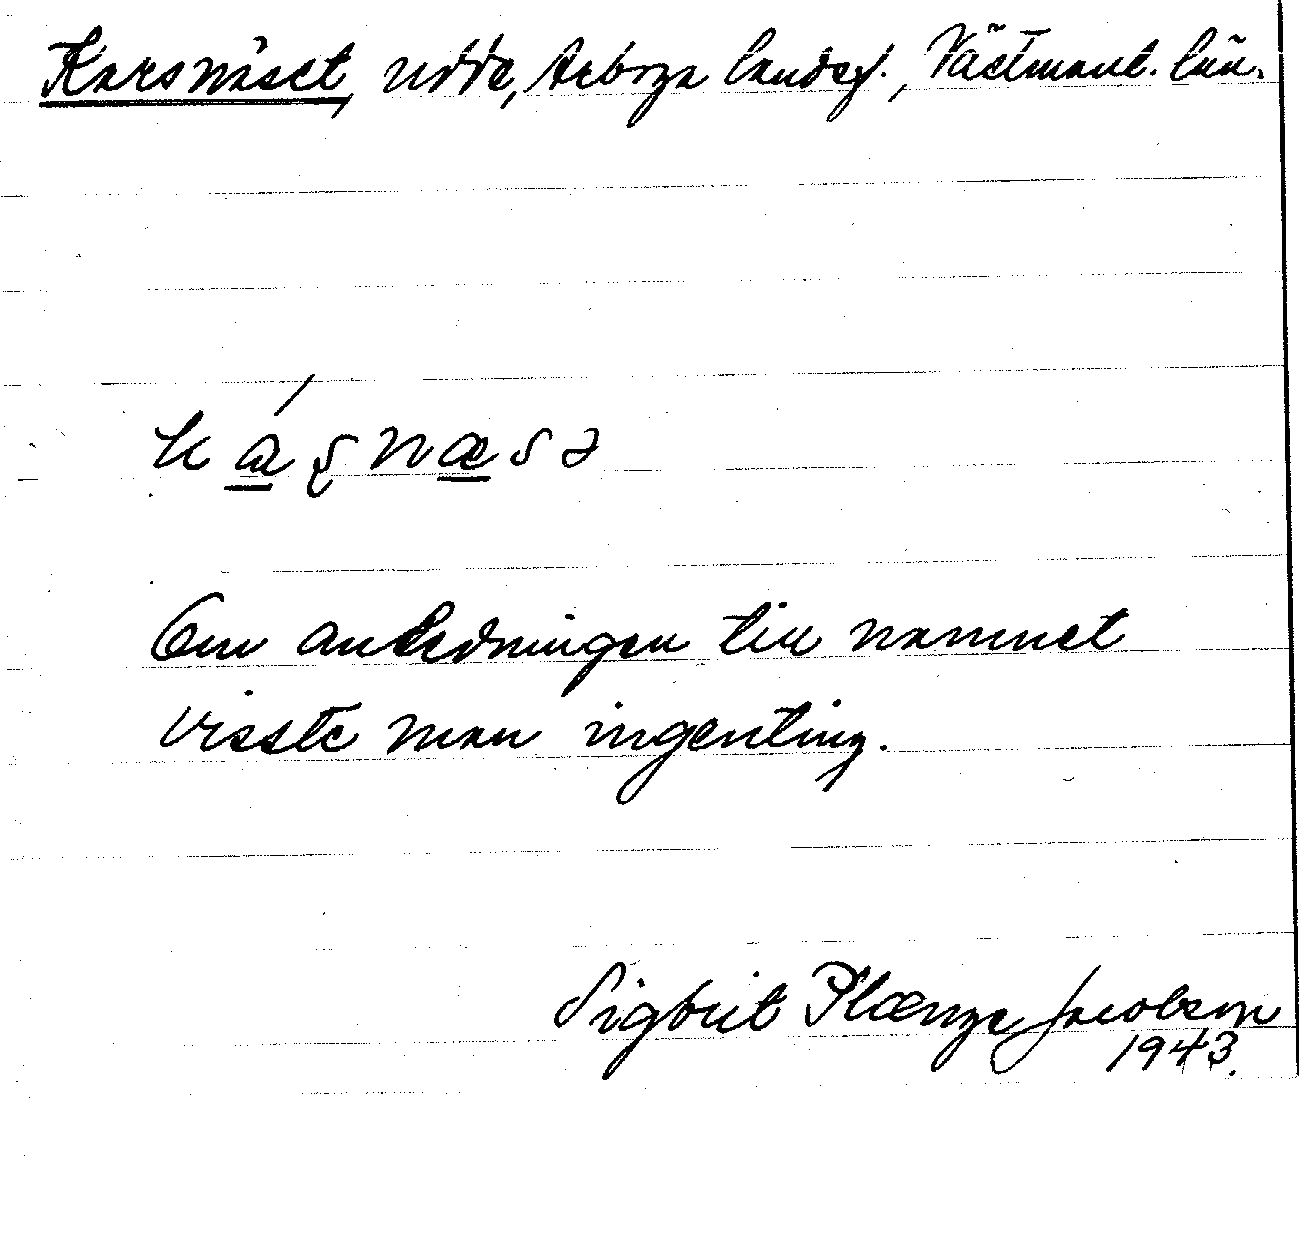 Karsnäset, udde, Arboga landsf., Västmanl. län.
káʂnæsə
Om anledningen till namnet
visste man ingenting.
Sigbrit Plænge Jacobson
1943.